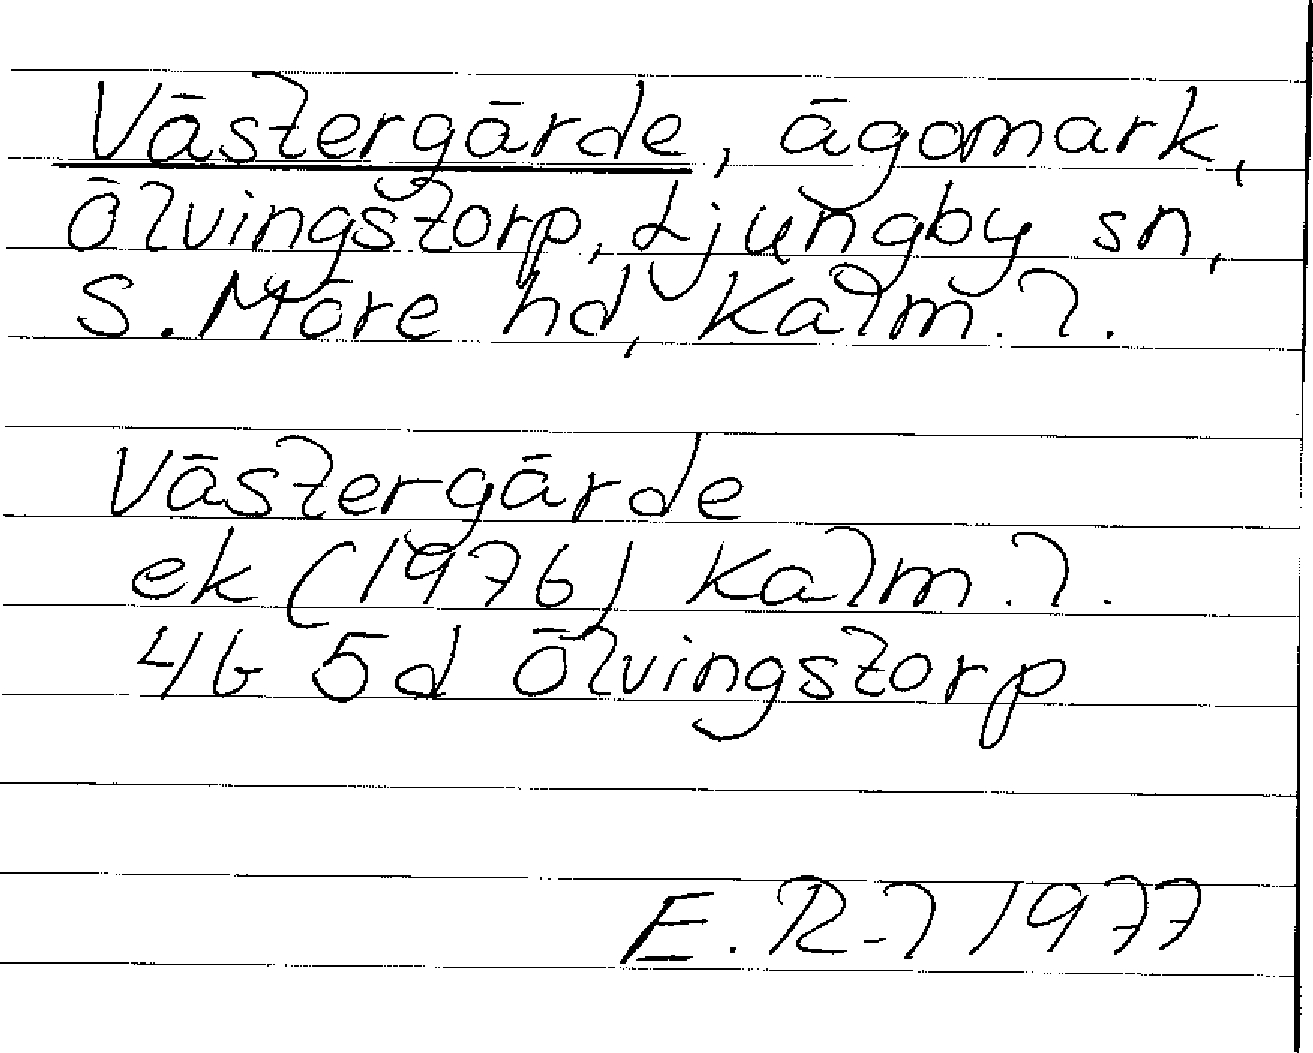 Västergärde, ägomark,
Ölvingstorp, Ljungby sn,
S. Möre hd, Kalm. l.
Västergärde
ek (1976) Kalm. l.
4G 5d Ölvingstorp
E. R-l 1977